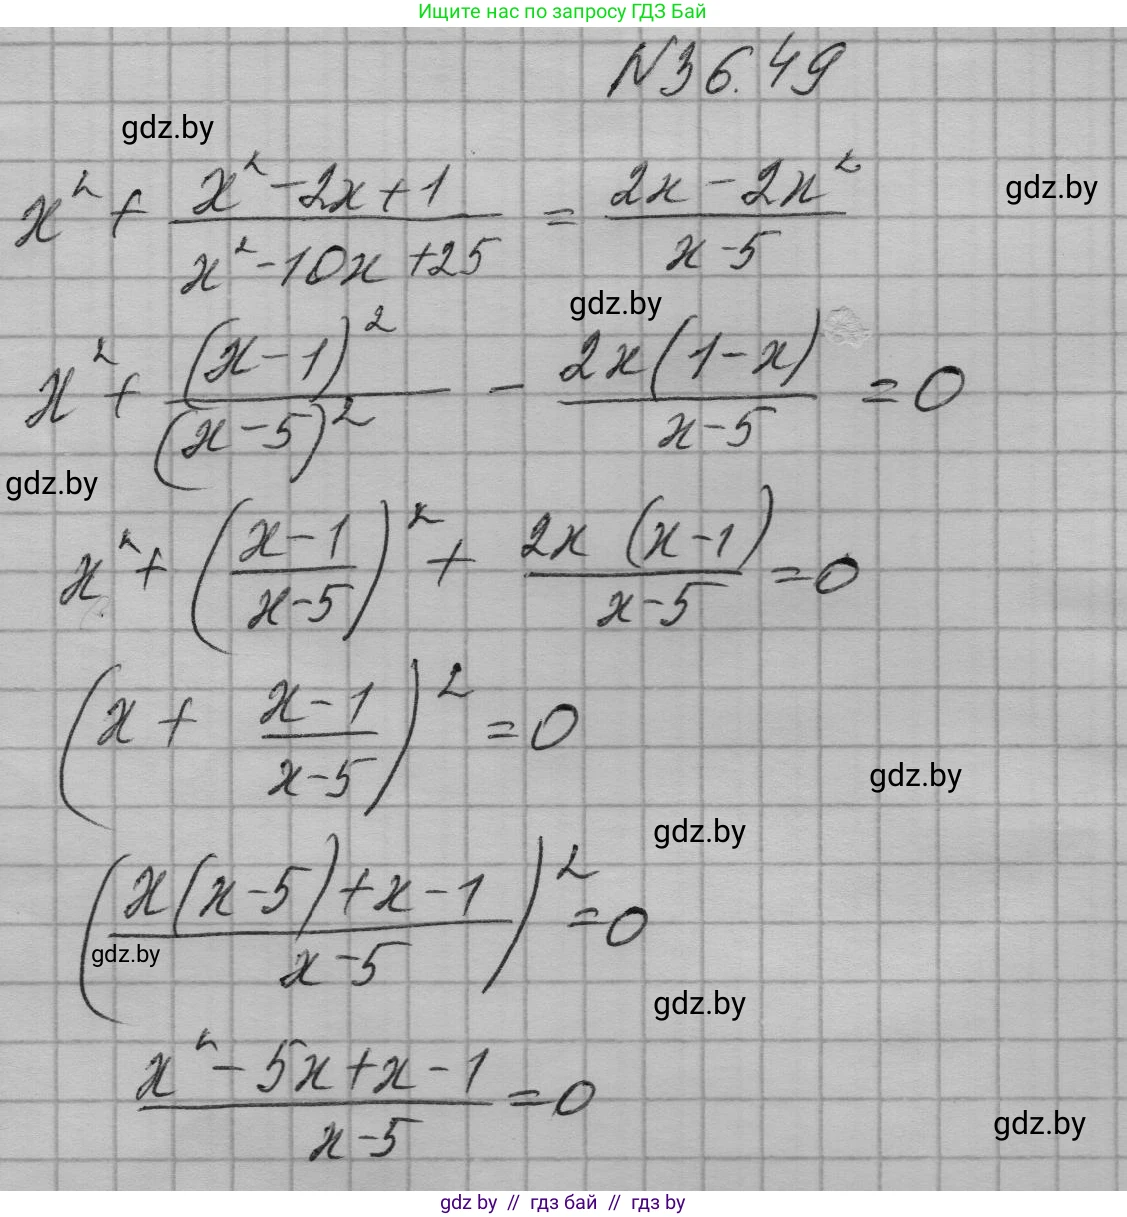 Ищите нас по запросу ГДЗ Бай
N36.49
gdz.by
x² + (x² - 2x + 1)/(x² - 10x + 25) = (2x - 2x²)/(x - 5)
gdz.by
gdz.by
x² + (x - 1)²/(x - 5)² - 2x(1 - x)/(x - 5) = 0
gdz.by
x² + ((x - 1)/(x - 5))² + 2x (x - 1)/(x - 5) = 0
(x + (x - 1)/(x - 5))² = 0
gdz.by
gdz.by
((x(x - 5) + x - 1)/(x - 5))² = 0
gdz.by
gdz.by
(x² - 5x + x - 1)/(x - 5) = 0
gdz.by
gdz by // гдз бай // гдз by